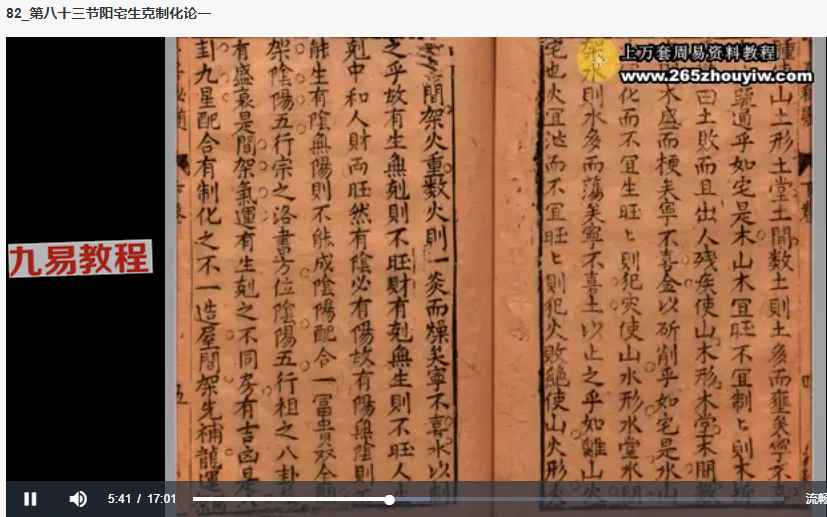 82_第八十三节阳宅生克制化论一
上万套周易资料教程
www.265zhouyiw.com
九易教程
山土形土堂土間数土則土多而壅矣寧不
疏通乎如宅是木山木宜旺不宜制ヒ則木折
曰土敗而且出人残疾使山木形木堂木間数
木盛而梗矣寧不喜金以斫削乎如宅是水山
化而不宜生旺ヒ則犯灾使山水形水堂水間
架水則水多而蕩矣寧不喜土以止之乎如離山火
宅也火宜泄而不宜旺ヒ則犯火敗絶使山火形火
間架火重数火則一炎而燥矣寧不喜水以制
之乎故有生無剋則不旺財有剋無生則不旺人
剋中和人財両旺然有陰必有陽故有陽無陰則
能生有陰無陽則不能成陰陽配合一冨貴双全
架陰陽五行宗之洛書方位陰陽五行祖之八卦
有盛衰是間架氣運有生剋之不同房有吉凶是
卦九星配合有制化之不一造屋間架先補龍運
5:41 / 17:01
流畅